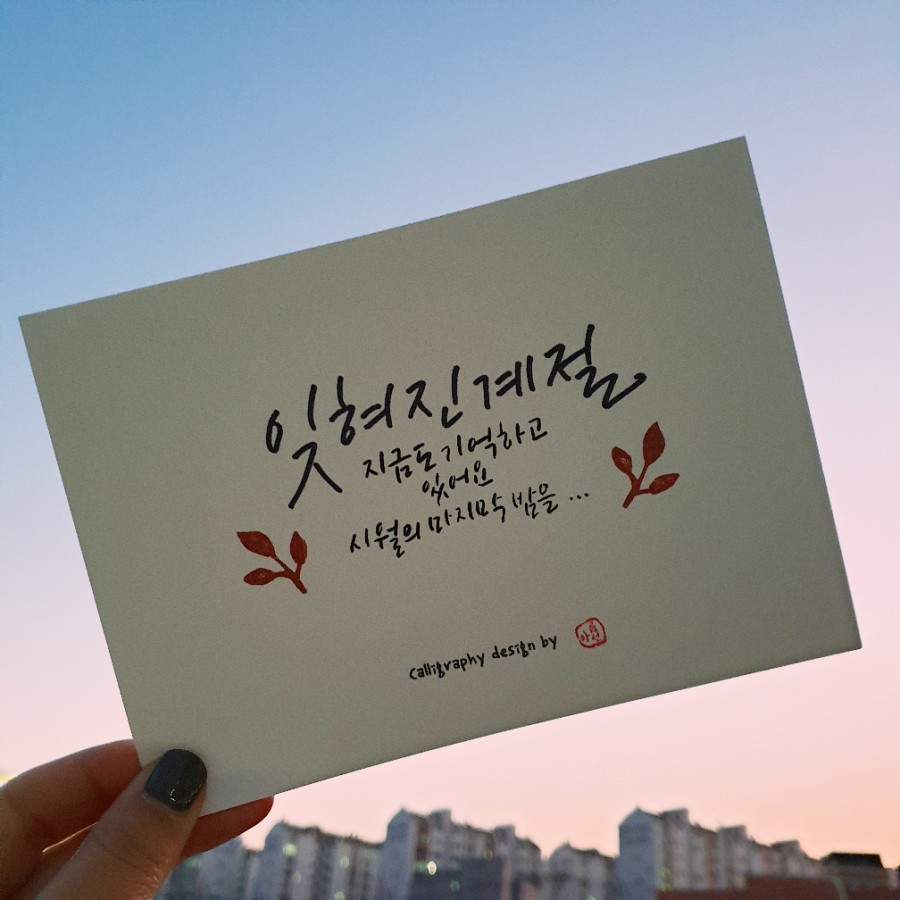 잊혀진계절
지금도 기억하고
있어요
시월의 마지막 밤을 ...
calligraphy design by